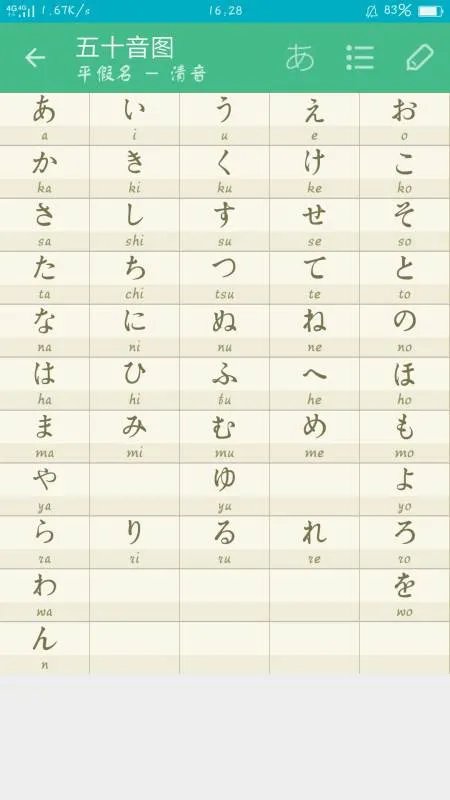 4G 4G 1.67K/s 16:28 83%
五十音图
平假名 — 清音
あ
あ い う え お
a i u e o
か き く け こ
ka ki ku ke ko
さ し す せ そ
sa shi su se so
た ち つ て と
ta chi tsu te to
な に ぬ ね の
na ni nu ne no
は ひ ふ へ ほ
ha hi fu he ho
ま み む め も
ma mi mu me mo
や ゆ よ
ya yu yo
ら り る れ ろ
ra ri ru re ro
わ を
wa wo
ん
n